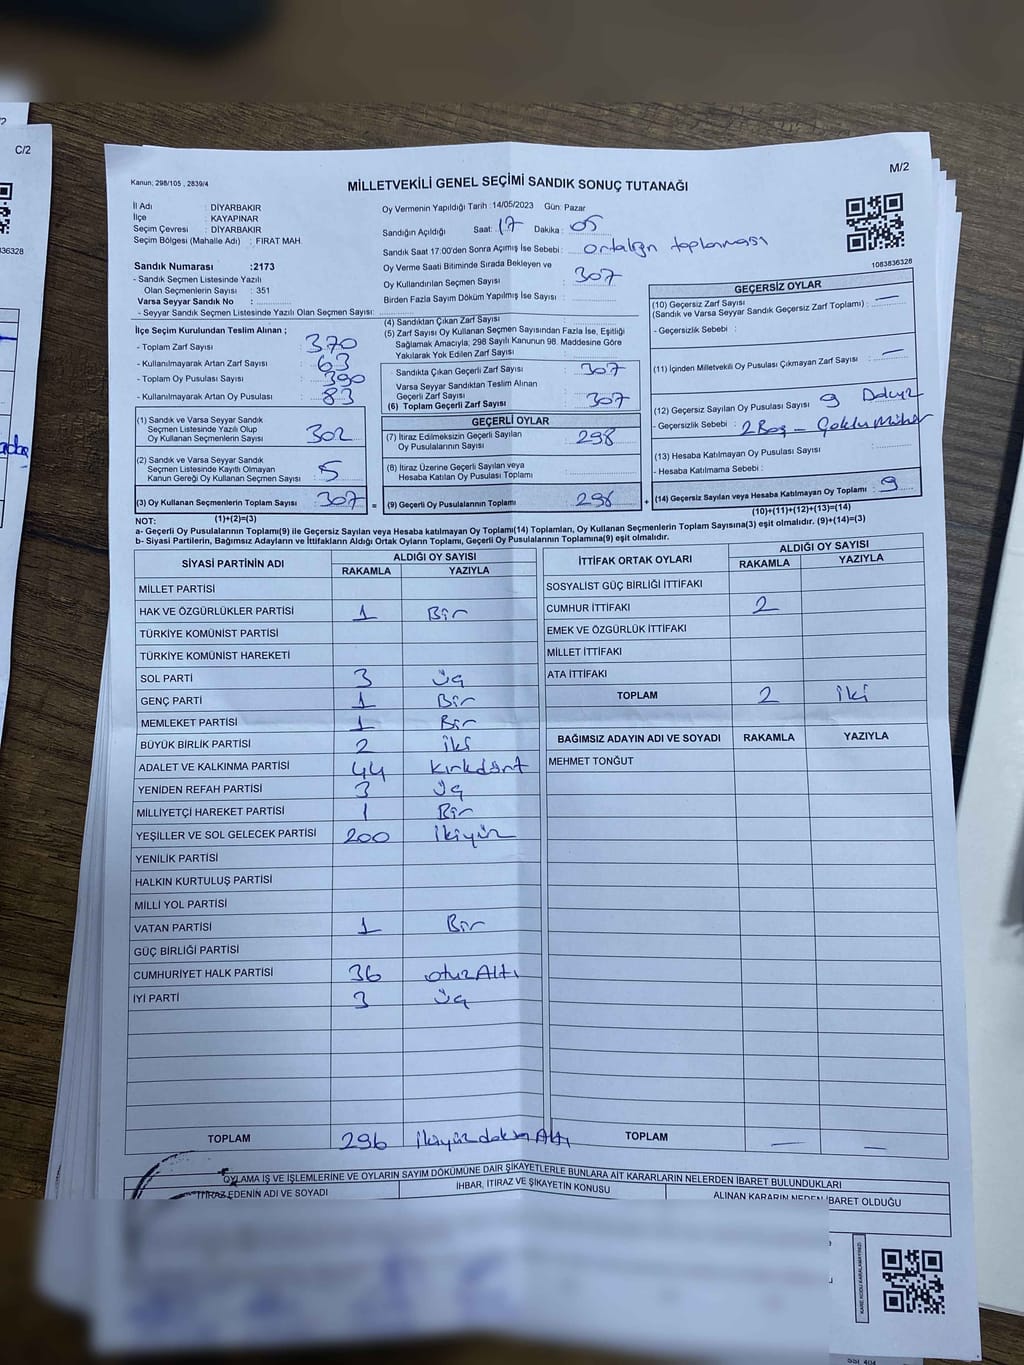 C/2
M/2
Kanun; 298/105 , 2839/4
MİLLETVEKİLİ GENEL SEÇİMİ SANDIK SONUÇ TUTANAĞI
İl Adı : DİYARBAKIR
İlçe : KAYAPINAR
Seçim Çevresi : DİYARBAKIR
Seçim Bölgesi (Mahalle Adı) : FIRAT MAH.
Oy Vermenin Yapıldığı Tarih :14/05/2023 Gün: Pazar
Sandığın Açıldığı Saat: 17 Dakika: 05
Sandık Saat 17:00'den Sonra Açımış İse Sebebi: ortalığın toplanması
Oy Verme Saati Bitiminde Sırada Bekleyen ve
Oy Kullandırılan Seçmen Sayısı : 307
Birden Fazla Sayım Döküm Yapılmış İse Sayısı :
1083836328
Sandık Numarası :2173
- Sandık Seçmen Listesinde Yazılı
Olan Seçmenlerin Sayısı : 351
Varsa Seyyar Sandık No :
- Seyyar Sandık Seçmen Listesinde Yazılı Olan Seçmen Sayısı:
İlçe Seçim Kurulundan Teslim Alınan ;
- Toplam Zarf Sayısı : 370
- Kullanılmayarak Artan Zarf Sayısı : 63
- Toplam Oy Pusulası Sayısı : 390
- Kullanılmayarak Artan Oy Pusulası : 83
(1) Sandık ve Varsa Seyyar Sandık
Seçmen Listesinde Yazılı Olup
Oy Kullanan Seçmenlerin Sayısı 302
(2) Sandık ve Varsa Seyyar Sandık
Seçmen Listesinde Kayıtlı Olmayan
Kanun Gereği Oy Kullanan Seçmen Sayısı 5
(3) Oy Kullanan Seçmenlerin Toplam Sayısı 307
(1)+(2)=(3)
(4) Sandıktan Çıkan Zarf Sayısı :
(5) Zarf Sayısı Oy Kullanan Seçmen Sayısından Fazla İse, Eşitliği
Sağlamak Amacıyla; 298 Sayılı Kanunun 98. Maddesine Göre
Yakılarak Yok Edilen Zarf Sayısı :
- Sandıkta Çıkan Geçerli Zarf Sayısı : 307
Varsa Seyyar Sandıktan Teslim Alınan
Geçerli Zarf Sayısı :
(6) Toplam Geçerli Zarf Sayısı : 307
GEÇERLİ OYLAR
(7) İtiraz Edilmeksizin Geçerli Sayılan
Oy Pusulalarının Sayısı : 298
(8) İtiraz Üzerine Geçerli Sayılan veya
Hesaba Katılan Oy Pusulası Toplamı
= (9) Geçerli Oy Pusulalarının Toplamı 298 +
GEÇERSİZ OYLAR
(10) Geçersiz Zarf Sayısı
(Sandık ve Varsa Seyyar Sandık Geçersiz Zarf Toplamı) : —
- Geçersizlik Sebebi :
(11) İçinden Milletvekili Oy Pusulası Çıkmayan Zarf Sayısı : —
(12) Geçersiz Sayılan Oy Pusulası Sayısı 9 Dokuz
- Geçersizlik Sebebi : 2 Boş –
(13) Hesaba Katılmayan Oy Pusulası Sayısı :
- Hesaba Katılmama Sebebi :
(14) Geçersiz Sayılan veya Hesaba Katılmayan Oy Toplamı : 9
(10)+(11)+(12)+(13)=(14)
NOT:
a- Geçerli Oy Pusulalarının Toplamı(9) ile Geçersiz Sayılan veya Hesaba katılmayan Oy Toplamı(14) Toplamları, Oy Kullanan Seçmenlerin Toplam Sayısına(3) eşit olmalıdır. (9)+(14)=(3)
b- Siyasi Partilerin, Bağımsız Adayların ve İttifakların Aldığı Ortak Oyların Toplamı, Geçerli Oy Pusulalarının Toplamına(9) eşit olmalıdır.
SİYASİ PARTİNİN ADI ALDIĞI OY SAYISI
RAKAMLA YAZIYLA
MİLLET PARTİSİ
HAK VE ÖZGÜRLÜKLER PARTİSİ 1 Bir
TÜRKİYE KOMÜNİST PARTİSİ
TÜRKİYE KOMÜNİST HAREKETİ
SOL PARTİ 3 Üç
GENÇ PARTİ 1 Bir
MEMLEKET PARTİSİ 1 Bir
BÜYÜK BİRLİK PARTİSİ 2 iki
ADALET VE KALKINMA PARTİSİ 44 Kırkdört
YENİDEN REFAH PARTİSİ 3 Üç
MİLLİYETÇİ HAREKET PARTİSİ 1 Bir
YEŞİLLER VE SOL GELECEK PARTİSİ 200 ikiyüz
YENİLİK PARTİSİ
HALKIN KURTULUŞ PARTİSİ
MİLLİ YOL PARTİSİ
VATAN PARTİSİ 1 Bir
GÜÇ BİRLİĞİ PARTİSİ
CUMHURİYET HALK PARTİSİ 36 otuzAltı
İYİ PARTİ 3 Üç
TOPLAM 296 ikiyüzdoksanAltı
İTTİFAK ORTAK OYLARI ALDIĞI OY SAYISI
RAKAMLA YAZIYLA
SOSYALİST GÜÇ BİRLİĞİ İTTİFAKI
CUMHUR İTTİFAKI 2
EMEK VE ÖZGÜRLÜK İTTİFAKI
MİLLET İTTİFAKI
ATA İTTİFAKI
TOPLAM 2 iki
BAĞIMSIZ ADAYIN ADI VE SOYADI RAKAMLA YAZIYLA
MEHMET TONĞUT
TOPLAM — —
OYLAMA İŞ VE İŞLEMLERİNE VE OYLARIN SAYIM DÖKÜMÜNE DAİR ŞİKAYETLERLE BUNLARA AİT KARARLARIN NELERDEN İBARET BULUNDUKLARI
İTİRAZ EDENİN ADI VE SOYADI İHBAR, İTİRAZ VE ŞİKAYETİN KONUSU ALINAN KARARIN NEDEN İBARET OLDUĞU